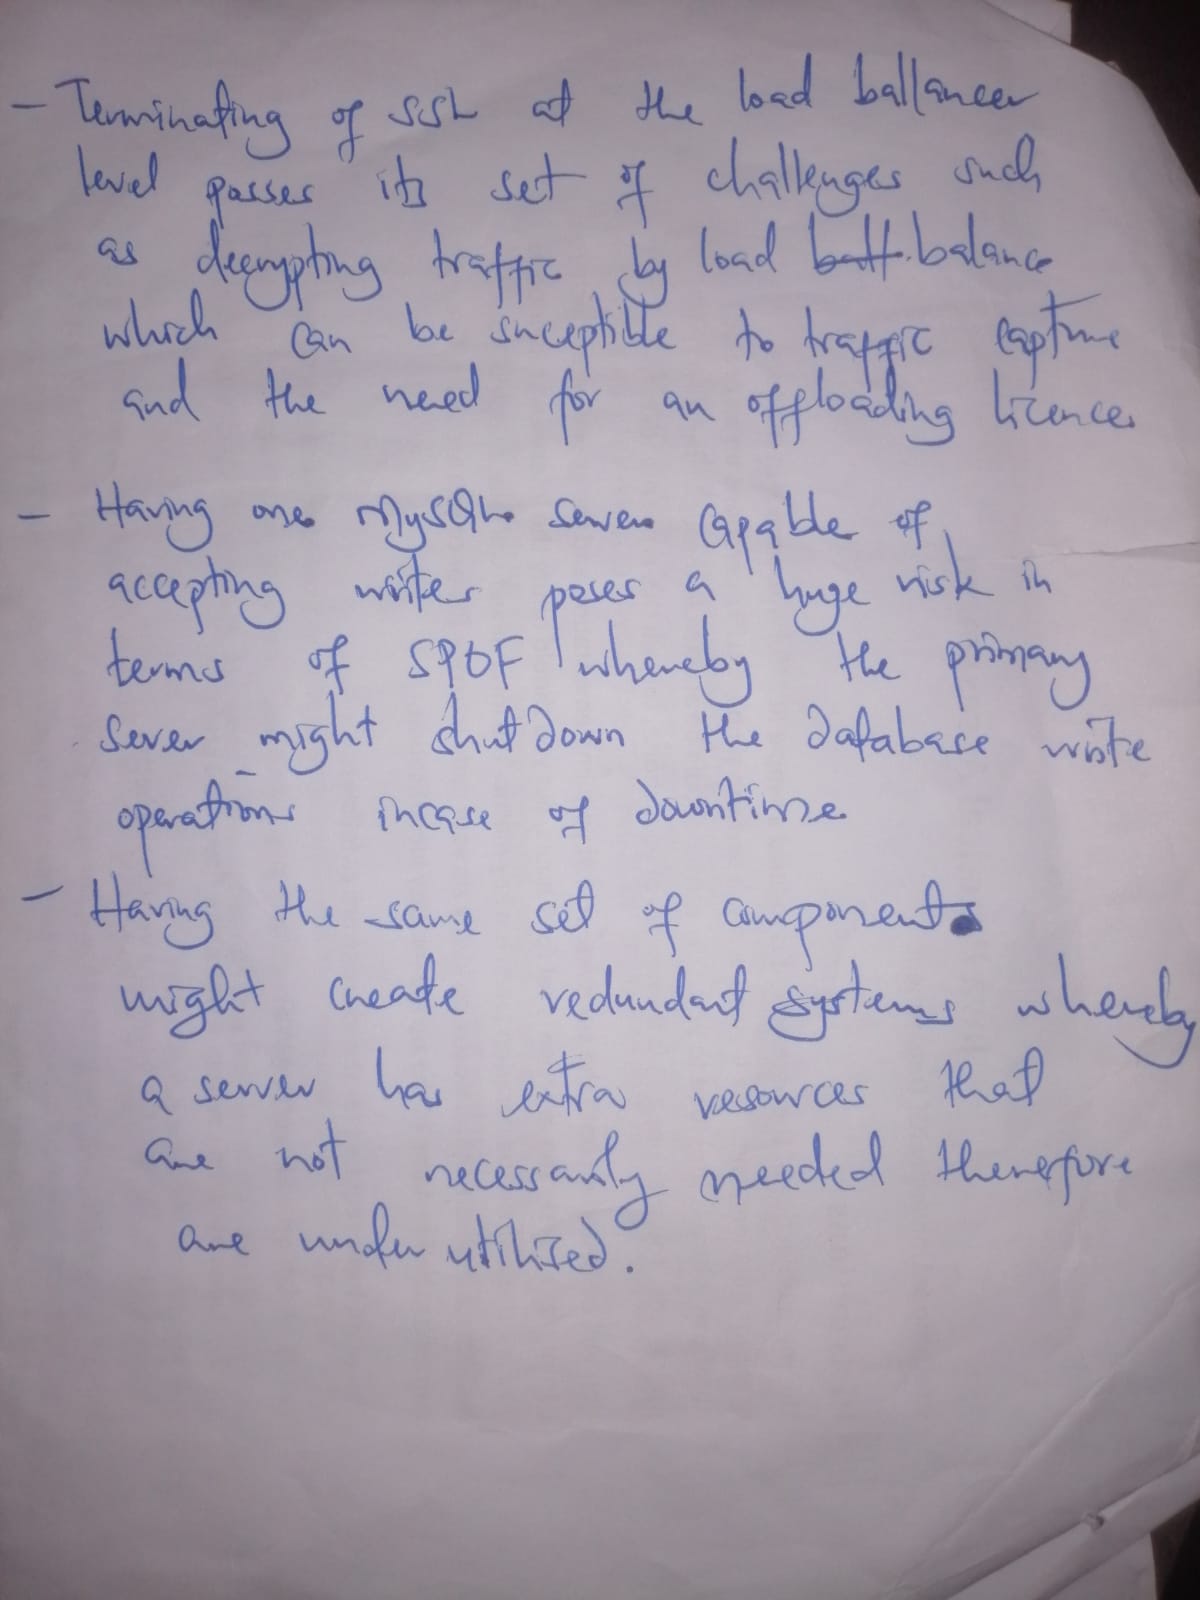 - Terminating of SSL at the load ballancer
level passes its set of challenges such
as decrypting traffic by load balance
which can be suceptible to traffic capture
and the need for an offloading licence.
- Having one MySQL server capable of
accepting writes poses a huge risk in
terms of SPOF whereby the primary
server might shutdown the database write
operations incase of downtime
- Having the same set of components
might create redundant systems whereby
a server has extra resources that
are not necessarily needed therefore
are under utilized.